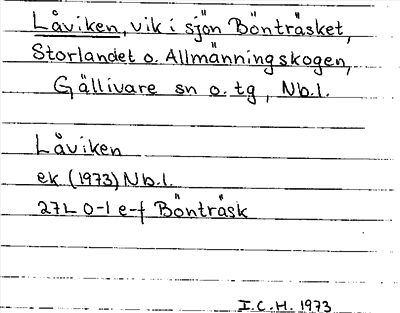 Låviken, vik i sjön Bönträsket,
Storlandet o. Allmänningskogen,
Gällivare sn o. tg, Nb.l.
Låviken
ek (1973) Nb.l.
27L 0-1 e-f Bönträsk
I.C.H. 1973